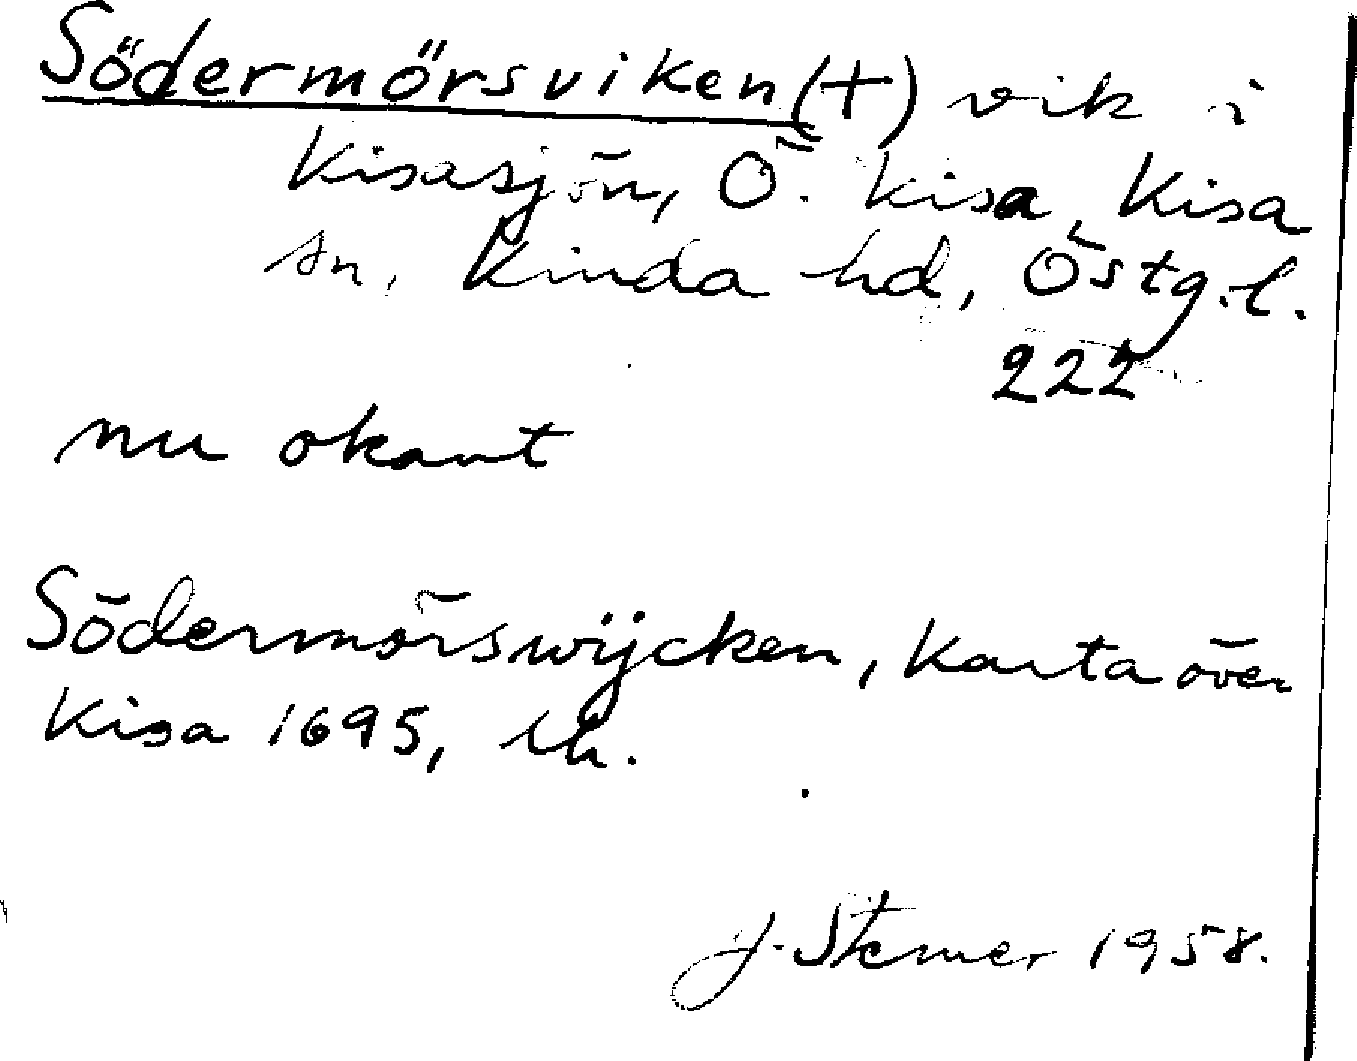 Södermörsviken (+) vik i
Kisasjön, Ö. Kisa, Kisa
sn, Kinda hd, Östg.l.
222
nu okant
Södermörswijcken, Karta över
Kisa 1695, LK.
J. Sterner 1958.